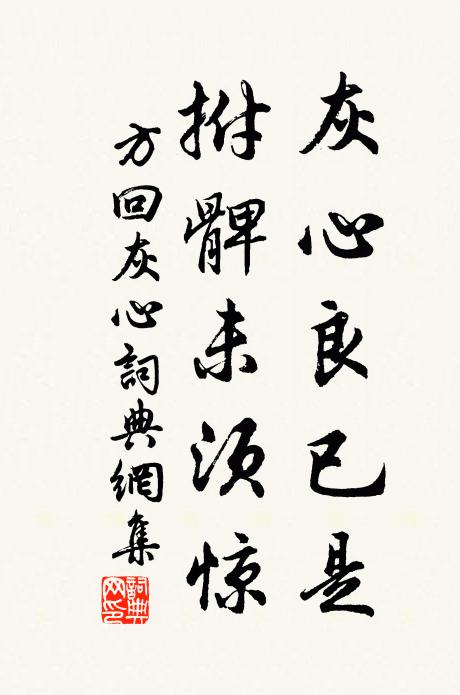 灰心良已是
拊髀未须惊
方回灰心詞典網集
詞典网印